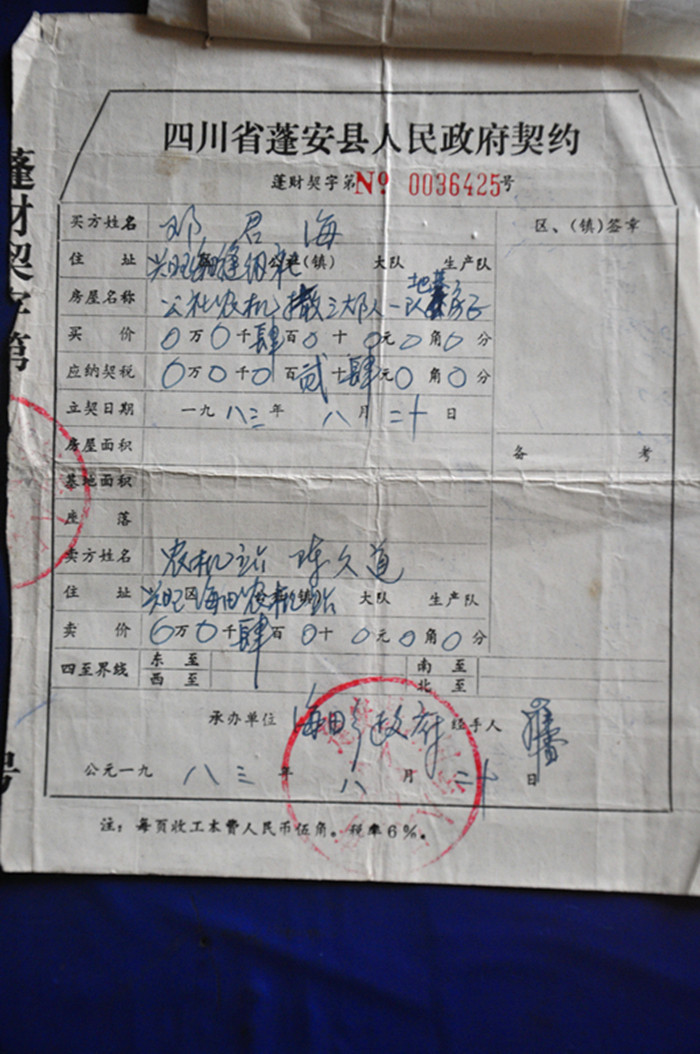 四川省蓬安县人民政府契约
蓬财契字第№ 0036425号
蓬财契字第
号
买方姓名 邓君海 区、(镇)签章
住址 兴旺区海田缝纫社 公社(镇) 大队 生产队
房屋名称 公社农机 三大队一队地基房子
买价 0万0千肆百0十0元0角0分
应纳契税 0万0千0百贰十肆元0角0分
立契日期 一九八三年八月二十日
房屋面积 备考
基地面积
座落
卖方姓名 农机站 陈久道
住址 兴旺区海田农机站 (镇) 大队 生产队
卖价 0万0千肆百0十0元0角0分
四至界线 东至 南至
西至 北至
承办单位 海田乡政府 经手人
公元一九八三年八月二十日
注:每页收工本费人民币伍角。税率6%。